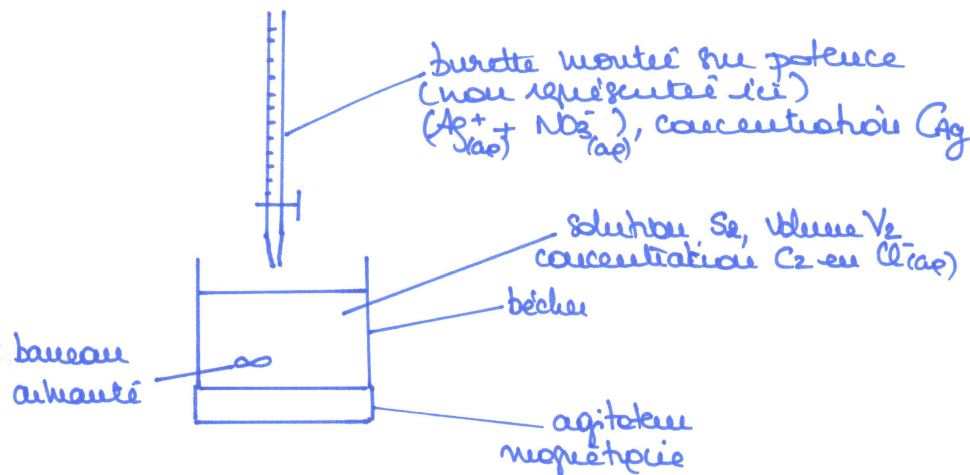 burette montée sur potence
(non représentée ici)
(Ag⁺(aq) + NO₃⁻(aq)), concentration CAg
solution S₂, volume V₂
concentration C₂ en Cl⁻(aq)
bécher
barreau
aimanté
agitateur
magnétique